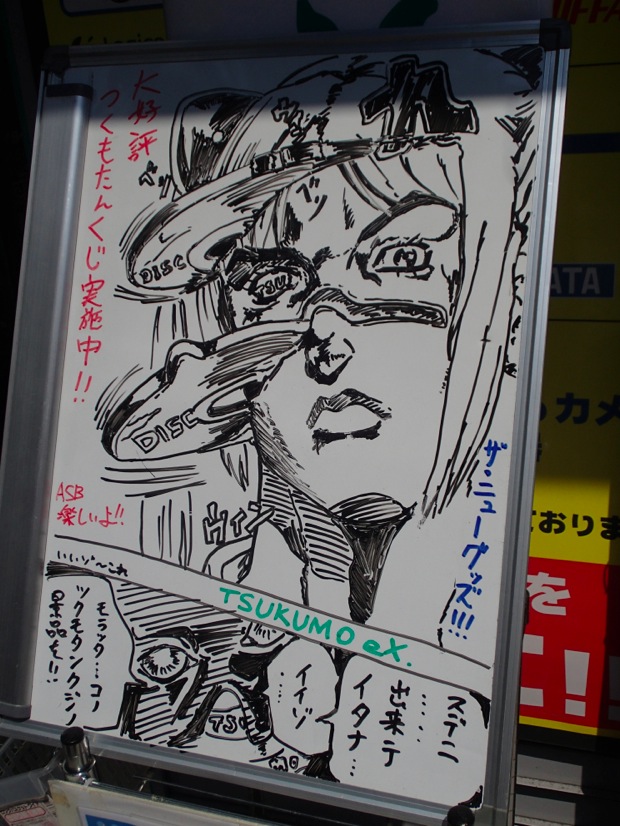 大好評
つくもたんくじ実施中!!
DISC
TSU
DISC
ASB
楽しいよ!!
ザ・ニューグッズ!!!
ヴィン
いいゾ〜これ
TSUKUMO eX.
スデニ
……
出来テ
イタナ…
…
イイゾ
モラッタ…コノ
ツクモタンクジノ
景品を!!
TSU
カメ
ておりま
を
に!!
DATA